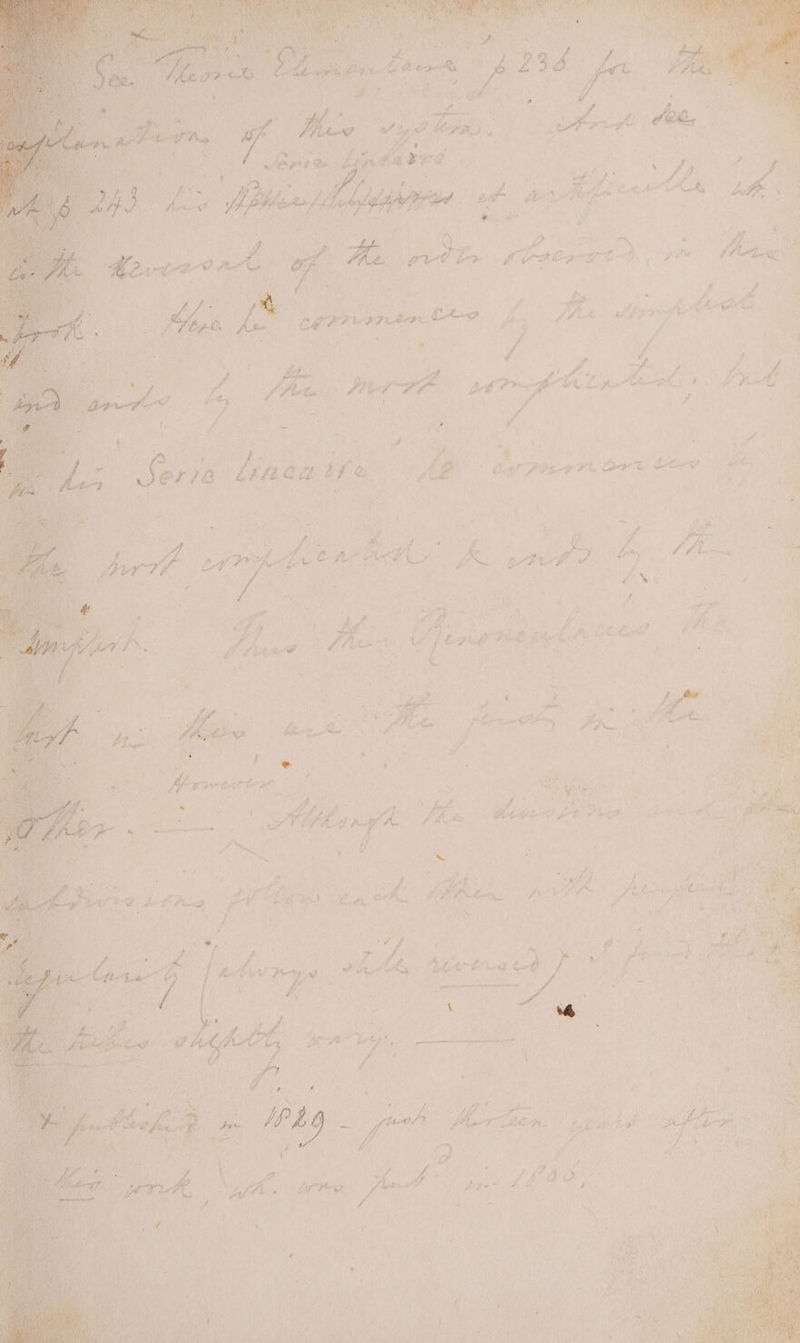 See "Theorie Elementaire" p 236 for the
explanation of this system. And see
Serie linéaire
at p 243 his et artificielle wh.
is the reversal of the order observed in this
book. Here he commences by the simplest
and ends by the most complicated, but
in his Serie lineaire he commences by
the most complicated & ends by the
simplest. Thus the Renonculacees the
last in this are the first in the
However
other. — Although the divisions and the
subdivisions follow each other with perfect
regularity (always still reversed) I find that
the tribes slightly vary. —
+ published in 1829 - just thirteen years after
this work wh. was pub in 1806,